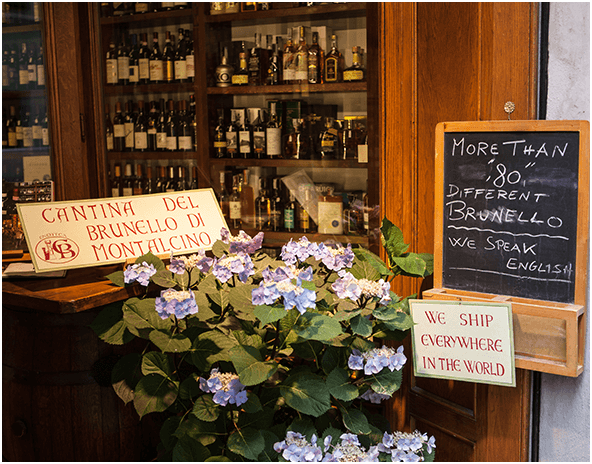 CANTINA DEL
BRUNELLO DI
MONTALCINO
MORE THAN
"80"
DIFFERENT
BRUNELLO
WE SPEAK
ENGLISH
WE SHIP
EVERYWHERE
IN THE WORLD